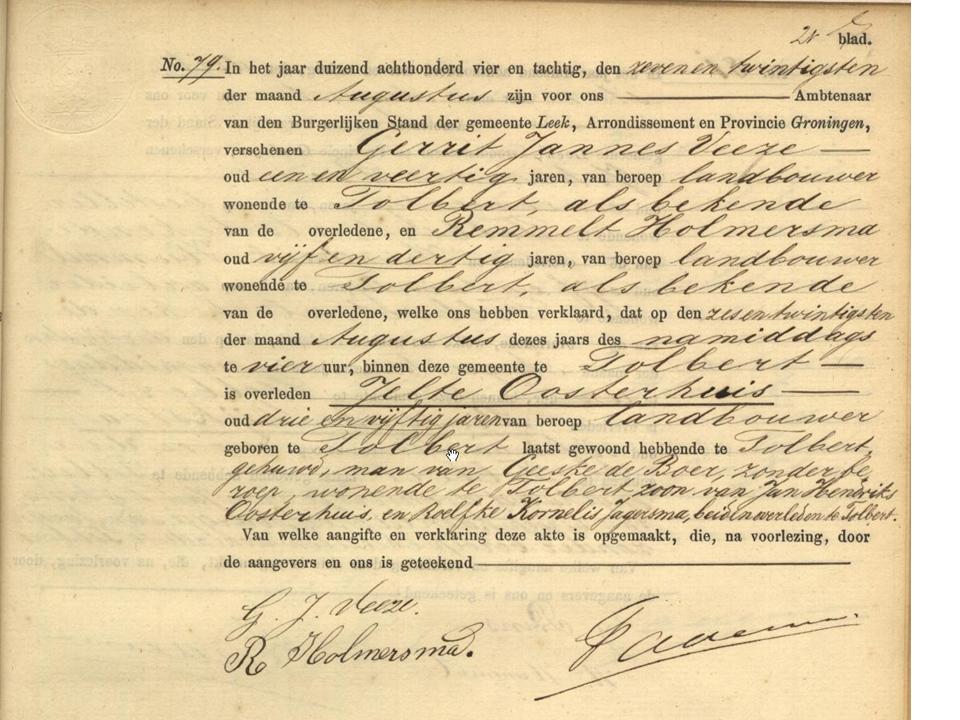 21 blad.
No. 79. In het jaar duizend achthonderd vier en tachtig, den zeven en twintigsten
der maand Augustus zijn voor ons Ambtenaar
van den Burgerlijken Stand der gemeente Leek, Arrondissement en Provincie Groningen,
verschenen Gerrit Jannes Veeze
oud een en veertig jaren, van beroep landbouwer
wonende te Tolbert, als bekende
van de overledene, en Remmelt Holmersma
oud vijf en dertig jaren, van beroep landbouwer
wonende te Tolbert, als bekende
van de overledene, welke ons hebben verklaard, dat op den zesentwintigsten
der maand Augustus dezes jaars des namiddags
te vier uur, binnen deze gemeente te Tolbert
is overleden Jelte Oosterhuis
oud drie en vijftig jaren van beroep landbouwer
geboren te Tolbert laatst gewoond hebbende te Tolbert,
gehuwd, man van Geeske de Boer, zonder be
roep, wonende te Tolbert zoon van Jan Hendriks
Oosterhuis en Roelfke Kornelis Jagersma, beiden overleden te Tolbert.
Van welke aangifte en verklaring deze akte is opgemaakt, die, na voorlezing, door
de aangevers en ons is geteekend
G. J. Veeze.
R Holmersma.